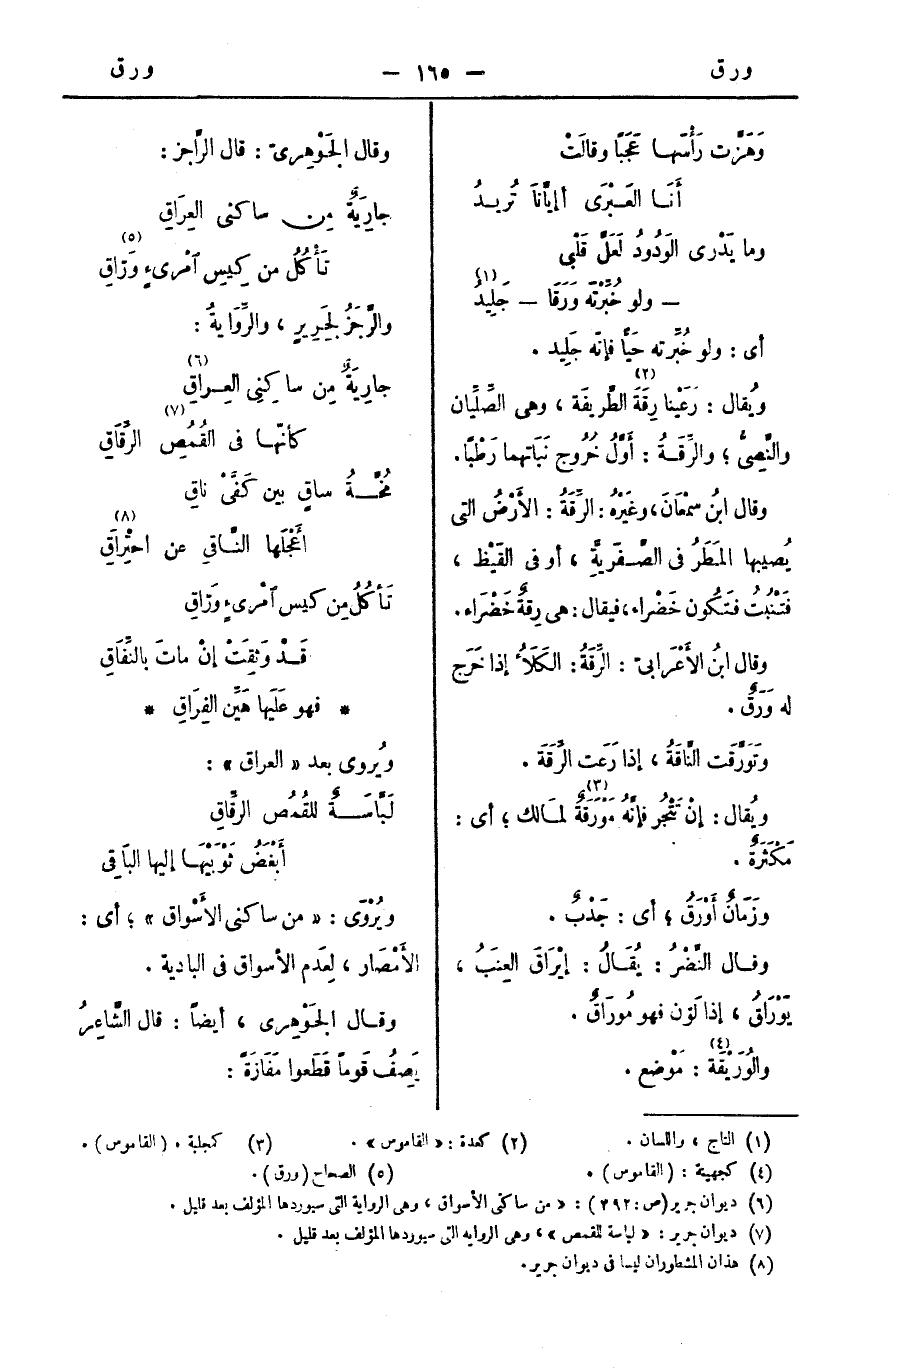 ورق
— ١٦٥ —
ورق
وَهَزَّت رَأْسَها عَجَبًا وقالَتْ
أَنَا العَبْرَى أَإِيَّانَا تُرِيدُ
وما يَدْرِى الوَدُودُ لَعَلَّ قَلْبِى
— ولو خُبِّرْتَه وَرَقًا — جَلِيدُ (١)
أى : ولو خُبِّرته حَيًّا فإنّه جَلِيد .
ويُقال : رَعَيْنا رِقَةَ (٢) الطَّرِيفَة ، وهى الصِّلِّيان
والنَّصِىُّ ؛ والرِّقَةُ : أَوَّلُ خُرُوج نَبَاتهما رَطْبًا.
وقال ابنُ سِمْعَانَ، وغَيْرُه : الرِّقَةُ : الأَرْضُ التى
يُصيبها المَطَرُ فى الصَّفَرِيَّة ، أو فى القَيْظ ،
فَتَنْبُتُ فَتكون خَضْراء، فيقال : هى رِقَةٌ خَضْرَاء.
وقال ابنُ الأَعْرابىّ : الرِّقَةُ: الكَلَأُ إذا خَرَج
له وَرَقٌ .
وتَوَرَّقت النَّاقَةُ ، إذا رَعَت الرِّقَةَ .
ويُقال : إنْ تَتْجُر فإنَّه مَوْرَقَةٌ (٣) لمَالك ؛ أى :
مَكْثَرَةٌ .
وزَمَانٌ أَوْرَقُ ؛ أى : جَدْبٌ .
وقال النَّضْرُ : يُقَالُ : إيْرَاقَ العِنَبُ ،
يَوْرَاقُ ، إذا لَوّن فهو مُورَاقٌ .
والوُرَيْقَة (٤) : مَوْضع .
وقال الجَوْهرىّ : قال الرَّاجز :
جارِيَةٌ مِن ساكنى العِرَاقِ
تَأْكُلُ من كِيس امْرِىءٍ وَرَّاقِ (٥)
والرَّجَزُ لجَرِيرٍ ، والرِّوَايةُ :
جاريَةٌ مِن ساكِنِى العِراقِ (٦)
كأنّها فى القُمُصِ الرِّقَاقِ (٧)
مُخَّةُ ساقٍ بين كَفَّىْ ناقِ
أَعْجَلها النَّاقِى عن احْتِرَاقِ (٨)
تَأكُلُ مِن كيس امْرِىءٍ وَرَّاقِ
قَدْ وَثِقَتْ إنْ ماتَ بالنَّفَاقِ
* فهو عَلَيها هَيِّن الفِرَاقِ *
ويُروى بعد « العراق » :
لَبَّاسَةٌ للقُمُص الرِّقَاقِ
أَبْغَضُ ثَوْبَيْهَا إليها البَاقِى
ويُرْوَى : « من ساكنى الأَسْواق » ؛ أى :
الأَمْصَار ، لِعَدم الأسواق فى البادية .
وقال الجَوْهرى ، أيضاً : قال الشَّاعِرُ
يَصِفُ قَوماً قَطَعوا مَفَازَةً :
(١) التاج ، واللسان . (٢) كعدة : « القاموس » . (٣) كجلبة . (القاموس) .
(٤) كجهينة : (القاموس) . (٥) الصحاح (ورق) .
(٦) ديوان جرير (ص : ٣٩٢) : « من ساكنى الأسواق ، وهى الرواية التى سيوردها المؤلف بعد قليل .
(٧) ديوان جرير : « لباسة للقمص » ، وهى الرواية التى سيوردها المؤلف بعد قليل .
(٨) هذان المشطوران ليسا فى ديوان جرير .